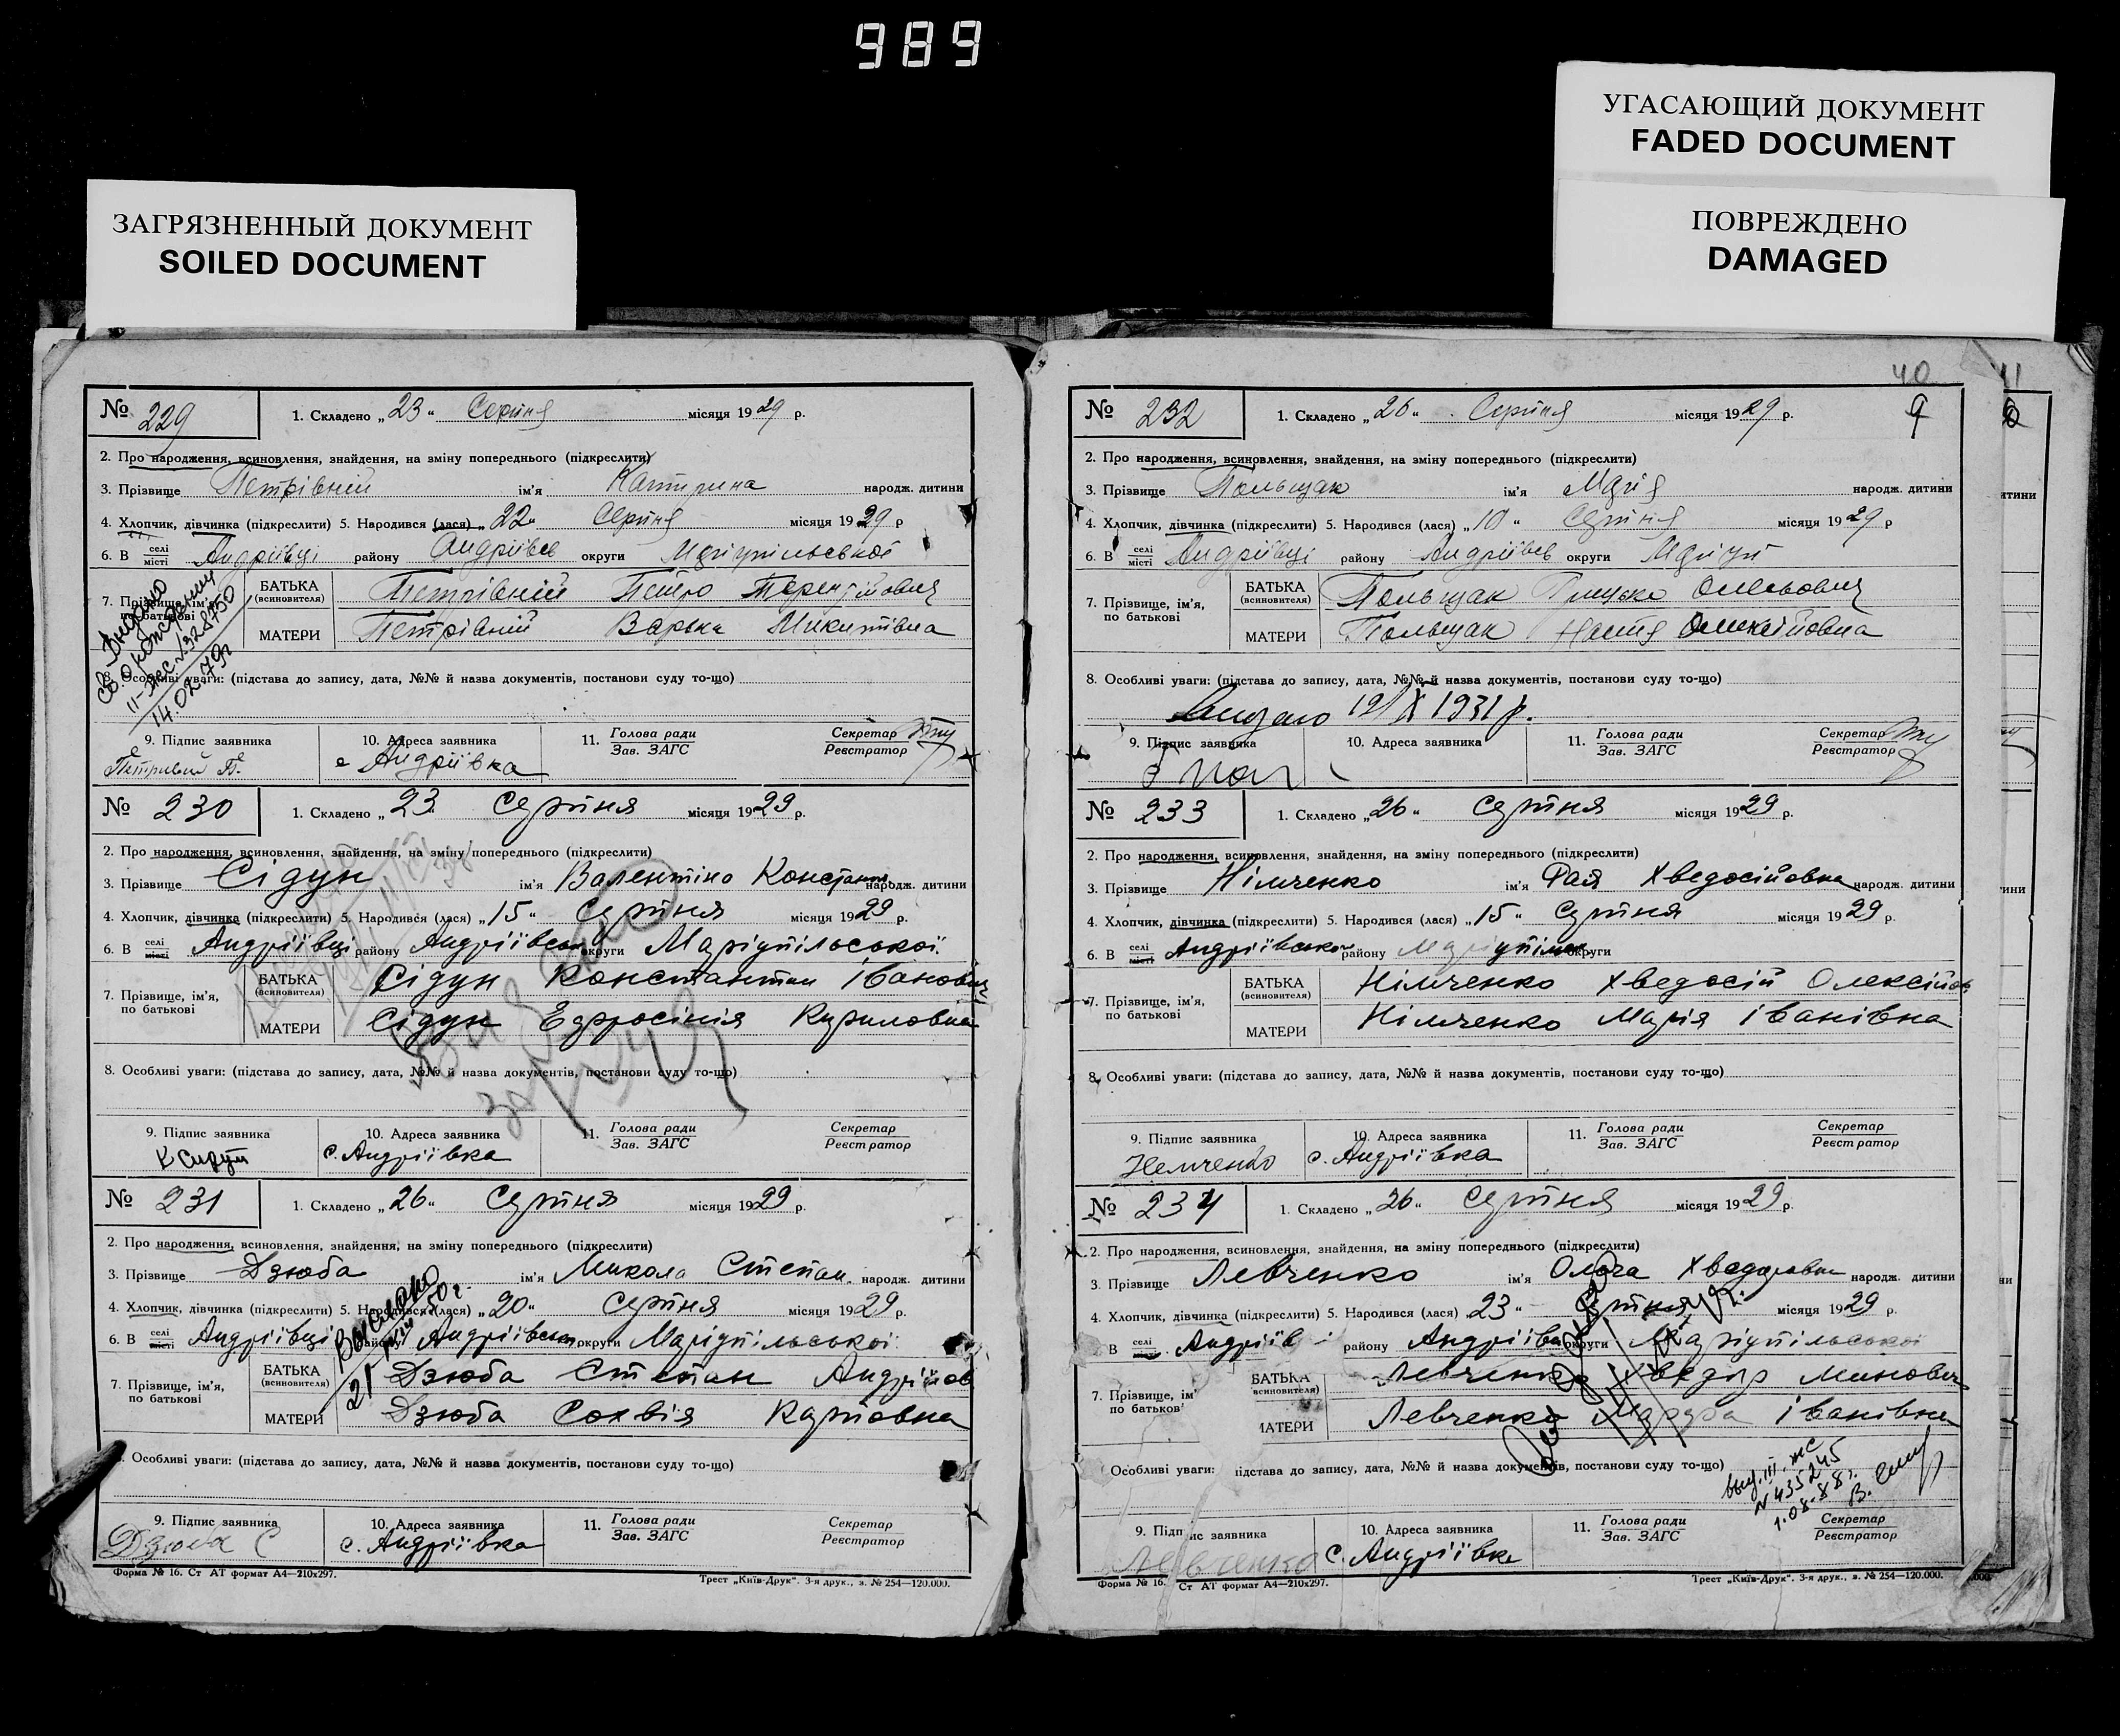 989
УГАСАЮЩИЙ ДОКУМЕНТ
FADED DOCUMENT
ЗАГРЯЗНЕННЫЙ ДОКУМЕНТ
SOILED DOCUMENT
ПОВРЕЖДЕНО
DAMAGED
№ 229 1. Складено „23“ Серпня місяця 1929 р.
2. Про народження, всиновлення, знайдення, на зміну попереднього (підкреслити)
3. Прізвище Петрівний ім'я Катирина народж. дитини
4. Хлопчик, дівчинка (підкреслити) 5. Народився (лася) „22“ Серпня місяця 1929 р
6. В селі місті Андріївці району Андріївсь округи Маріупільської
7. Прізвище, ім'я, по батькові
БАТЬКА (всиновителя) Петрівний Петро Терентійович
МАТЕРИ Петрівний Варька Микитівна
Выдано
св. о рождении
II-
14.02.79г
8. Особливі уваги: (підстава до запису, дата, №№ й назва документів, постанови суду то-що)
9. Підпис заявника 10. Адреса заявника 11. Голова ради Зав. ЗАГС Секретар Реєстратор
Петривый П. с Андріївка
№ 230 1. Складено „23 Серпня місяця 1929 р.
2. Про народження, всиновлення, знайдення, на зміну попереднього (підкреслити)
3. Прізвище Сідун ім'я Валентіна Констант народж. дитини
4. Хлопчик, дівчинка (підкреслити) 5. Народився (лася) „15“ Серпня місяця 1929 р.
6. В селі місті Андріївці району Андріївськ округи Маріупільської
7. Прізвище, ім'я, по батькові
БАТЬКА (всиновителя) Сідун Константин Іванович
МАТЕРИ Сідун Ефросінія Кириловна
8. Особливі уваги: (підстава до запису, дата, №№ й назва документів, постанови суду то-що)
9. Підпис заявника 10. Адреса заявника 11. Голова ради Зав. ЗАГС Секретар Реєстратор
с. Андріївка
№ 231 1. Складено „26“ Серпня місяця 1929 р.
2. Про народження, всиновлення, знайдення, на зміну попереднього (підкреслити)
3. Прізвище Дзюба ім'я Микола Степан. народж. дитини
4. Хлопчик, дівчинка (підкреслити) 5. Народився (лася) „20“ Серпня місяця 1929 р.
6. В селі місті Андріївці району Андріївськ округи Маріупільської
7. Прізвище, ім'я, по батькові
БАТЬКА (всиновителя) Дзюба Степан Андрійов
МАТЕРИ Дзюба Сохвія Карповна
Особливі уваги: (підстава до запису, дата, №№ й назва документів, постанови суду то-що)
9. Підпис заявника 10. Адреса заявника 11. Голова ради Зав. ЗАГС Секретар Реєстратор
Дзюба С с. Андріївка
Форма № 16. Ст АТ формат А4—210х297. Трест „Київ-Друк“. 3-я друк., з. № 254—120.000.
40
№ 232 1. Складено „26“ Серпня місяця 1929 р.
2. Про народження, всиновлення, знайдення, на зміну попереднього (підкреслити)
3. Прізвище Польщак ім'я Марія народж. дитини
4. Хлопчик, дівчинка (підкреслити) 5. Народився (лася) „10“ Серпня місяця 1929 р
6. В селі місті Андріївці району Андріївсь округи Маріуп
7. Прізвище, ім'я, по батькові
БАТЬКА (всиновителя) Польщак Грицько
МАТЕРИ Польщак Настя Олексійовна
8. Особливі уваги: (підстава до запису, дата, №№ й назва документів, постанови суду то-що)
19/X 1931 р.
9. Підпис заявника 10. Адреса заявника 11. Голова ради Зав. ЗАГС Секретар Реєстратор
№ 233 1. Складено „26“ Серпня місяця 1929 р.
2. Про народження, всиновлення, знайдення, на зміну попереднього (підкреслити)
3. Прізвище Німченко ім'я Фая Хведосійовна народж. дитини
4. Хлопчик, дівчинка (підкреслити) 5. Народився (лася) „15“ Серпня місяця 1929 р.
6. В селі місті Андріївськом району Маріупільск округи
7. Прізвище, ім'я, по батькові
БАТЬКА (всиновителя) Німченко Хведосій Олексійов
МАТЕРИ Німченко Марія Іванівна
8. Особливі уваги: (підстава до запису, дата, №№ й назва документів, постанови суду то-що)
9. Підпис заявника 10. Адреса заявника 11. Голова ради Зав. ЗАГС Секретар Реєстратор
Немченко с. Андріївка
№ 234 1. Складено „26“ Серпня місяця 1929 р.
2. Про народження, всиновлення, знайдення, на зміну попереднього (підкреслити)
3. Прізвище Левченко ім'я Ольга Хведоровна народж. дитини
4. Хлопчик, дівчинка (підкреслити) 5. Народився (лася) 23“ Серпня місяця 1929 р.
В селі Андріїв району Андріївськ округи Маріупільської
7. Прізвище, ім' по батьков'
БАТЬКА всиновителя) Левченко Хведір Минович
МАТЕРИ Левченко Іванівна
Особливі уваги: підстава до запису, дата, №№ й назва документів, постанови суду то-що)
выд. III. жс
№ 435245
1.08.88г.
9. Підп ис заявника 10. Адреса заявника 11. Голова ради Зав. ЗАГС Секретар Реєстратор
Левченко с. Андріївка
Форма № 16. Ст АТ формат А4—210х297. Трест „Київ-Друк“. 3-я друк., з. № 254—120.000.